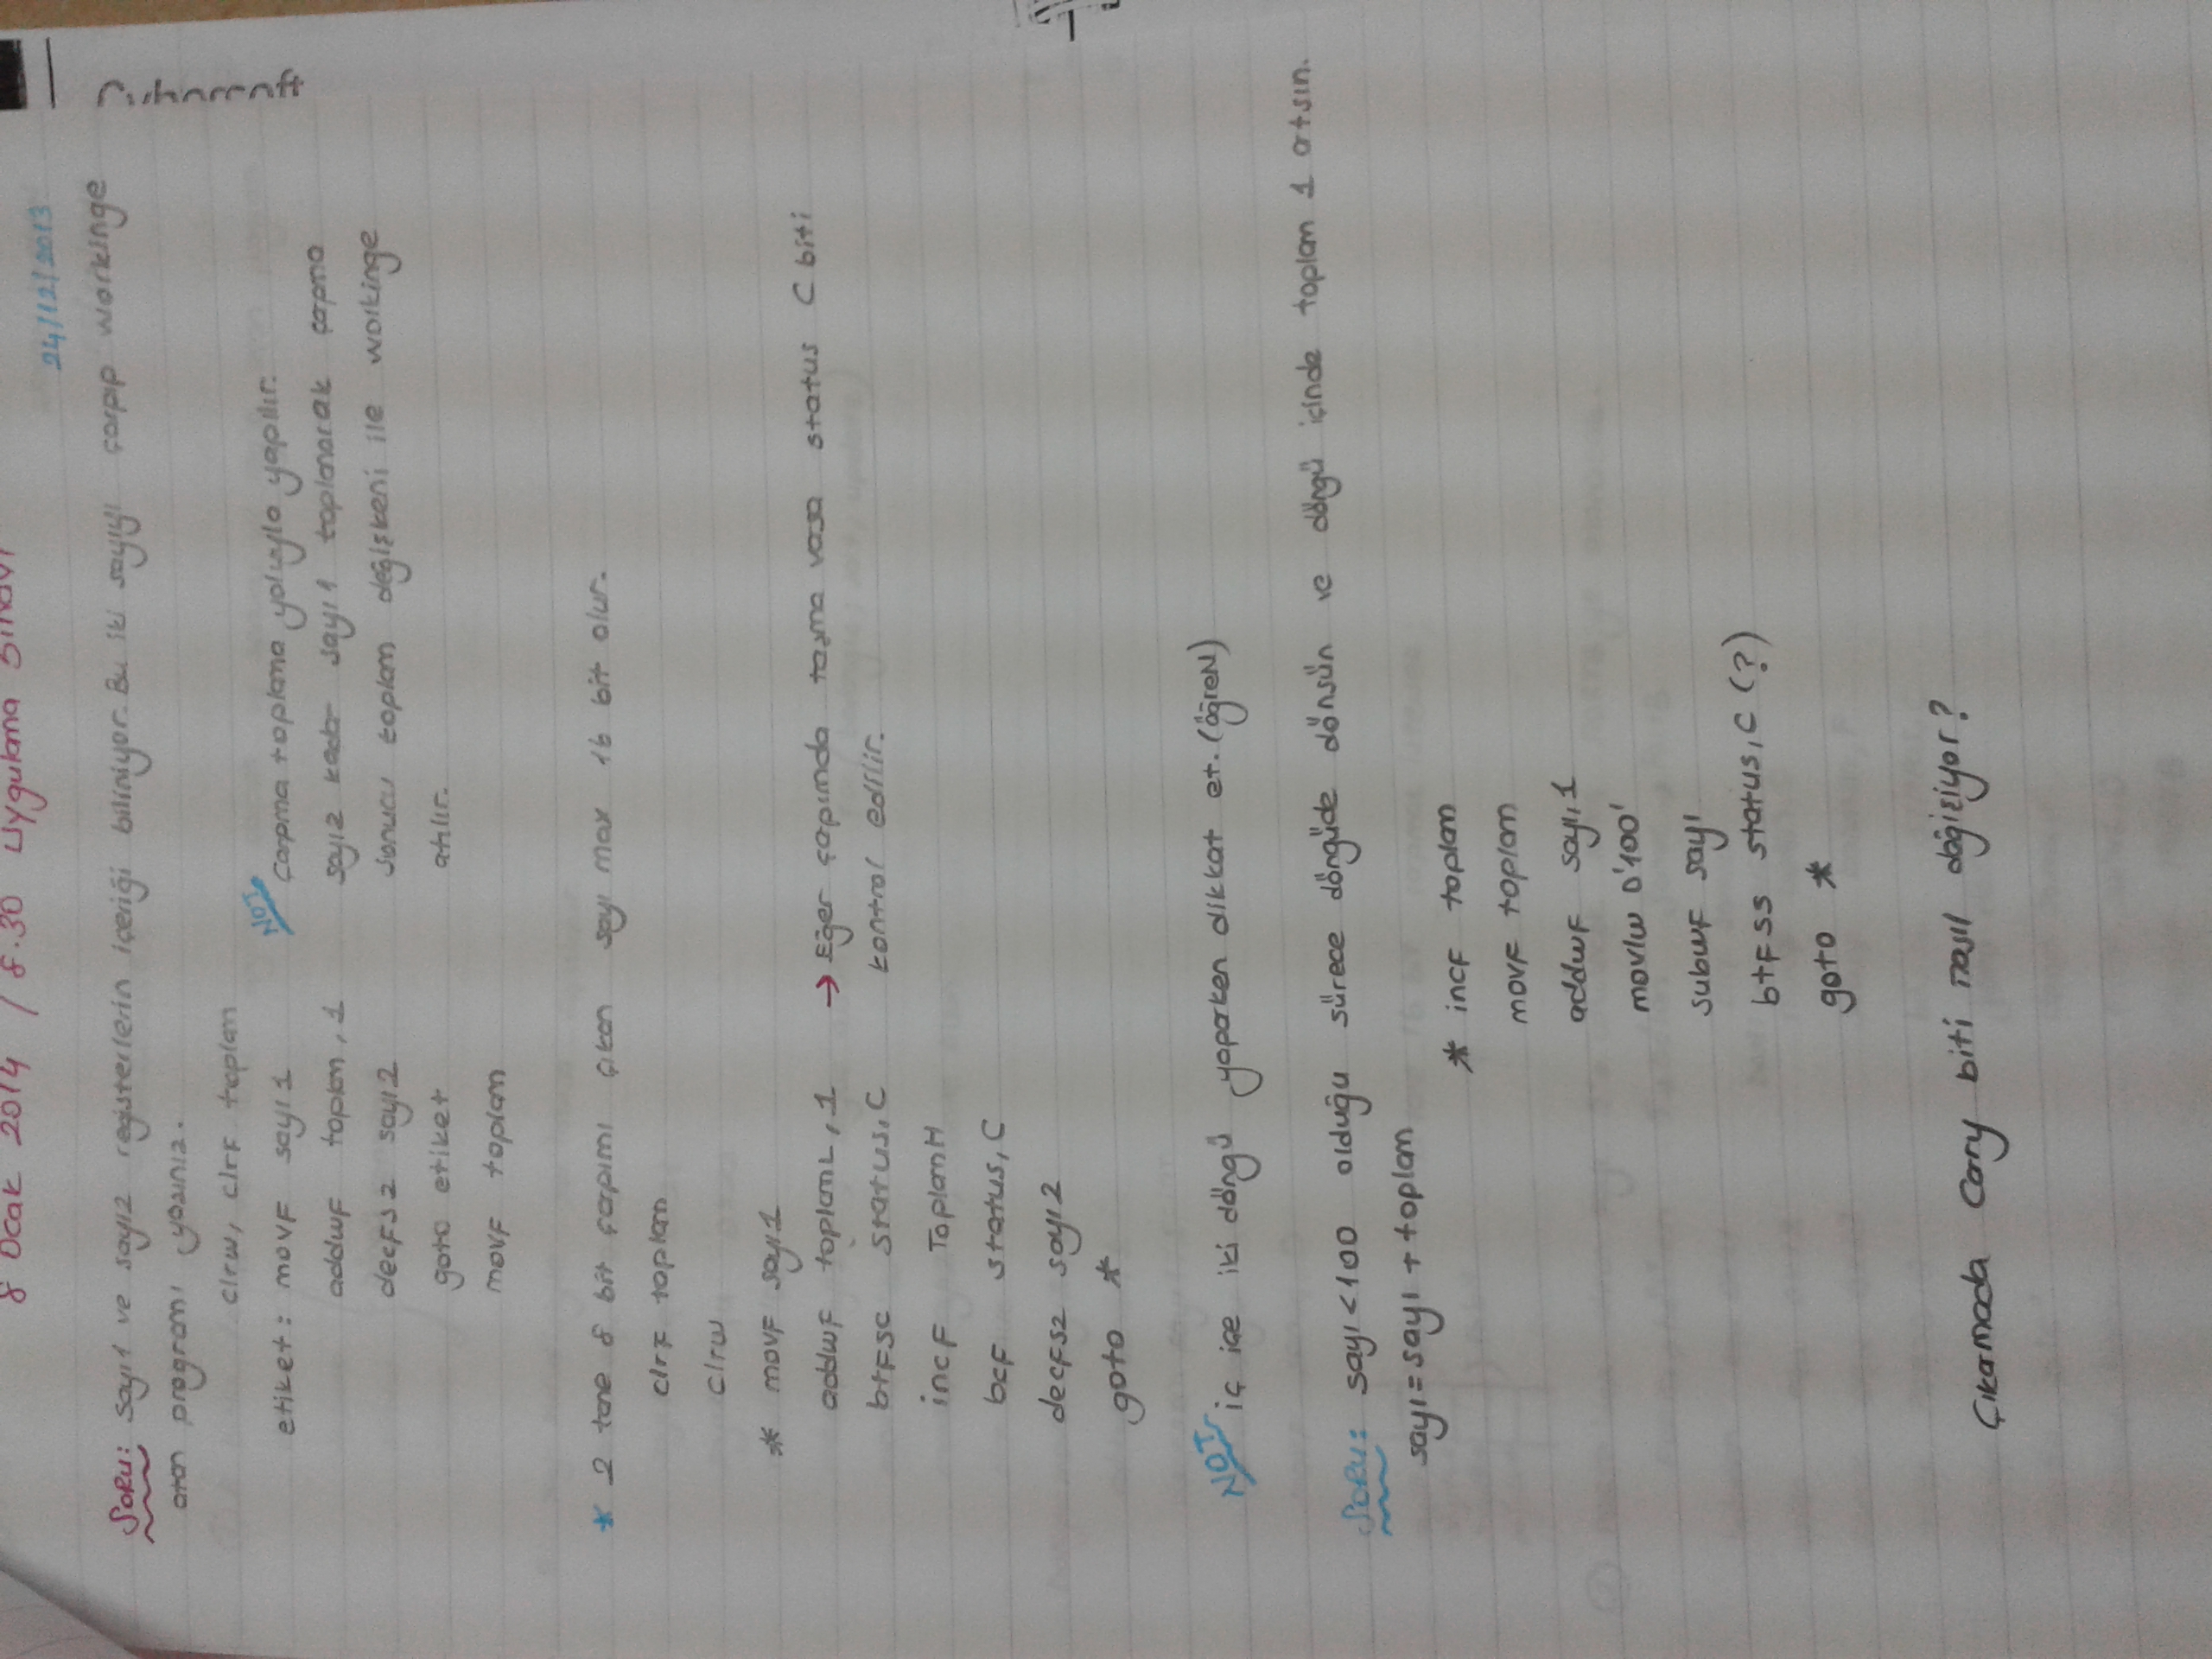 8 Ocak 2014 / 8.30 Uygulama Sınavı
24/12/2013
Soru: sayı1 ve sayı2 registerlerin içeriği biliniyor. Bu iki sayıyı çarpıp workinge
atan programı yazınız.
clrw, clrF toplam
etiket: movF sayı1
addwF toplam, 1
decFsz sayı2
goto etiket
movF toplam
NOT Çarpma toplama yoluyla yapılır.
sayı2 kadar sayı1 toplanarak çarpma
sonucu toplam değişkeni ile workinge
atılır.
* 2 tane 8 bit çarpımı çıkan sayı max 16 bit olur.
clrF toplam
clrw
* movF sayı1
addwF toplamL, 1 → Eğer çapımda taşma vasa status C biti
btFsc status,C kontrol edilir.
incF ToplamH
bcF status, C
decFsz sayı2
goto *
NOT iç içe iki döngü yaparken dikkat et. (öğreN)
Soru: sayı<100 olduğu sürece döngüde dönsün ve döngü içinde toplam 1 artsın.
sayı=sayı + toplam
* incF toplam
movF toplam
addwF sayı,1
movlw D'100'
subwF sayı
btFss status,C (?)
goto *
Çıkarmada Carry biti nasıl değişiyor?